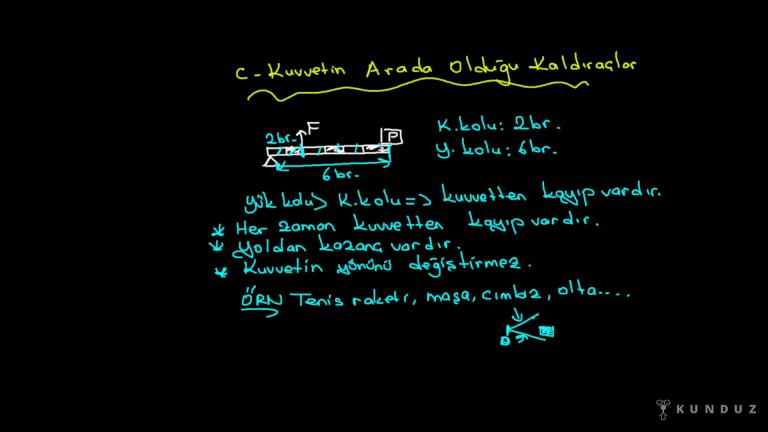 C - Kuvvetin Arada Olduğu Kaldıraçlar
2br. F P
K.kolu: 2br.
Y. kolu: 6br.
6br.
yük kolu > K.kolu => kuvvetten kayıp vardır.
* Her zaman kuvvetten kayıp vardır.
* Yoldan kazanç vardır.
* Kuvvetin yönünü değiştirmez.
ÖRN Tenis raketi, maşa, cımbız, olta....
KUNDUZ